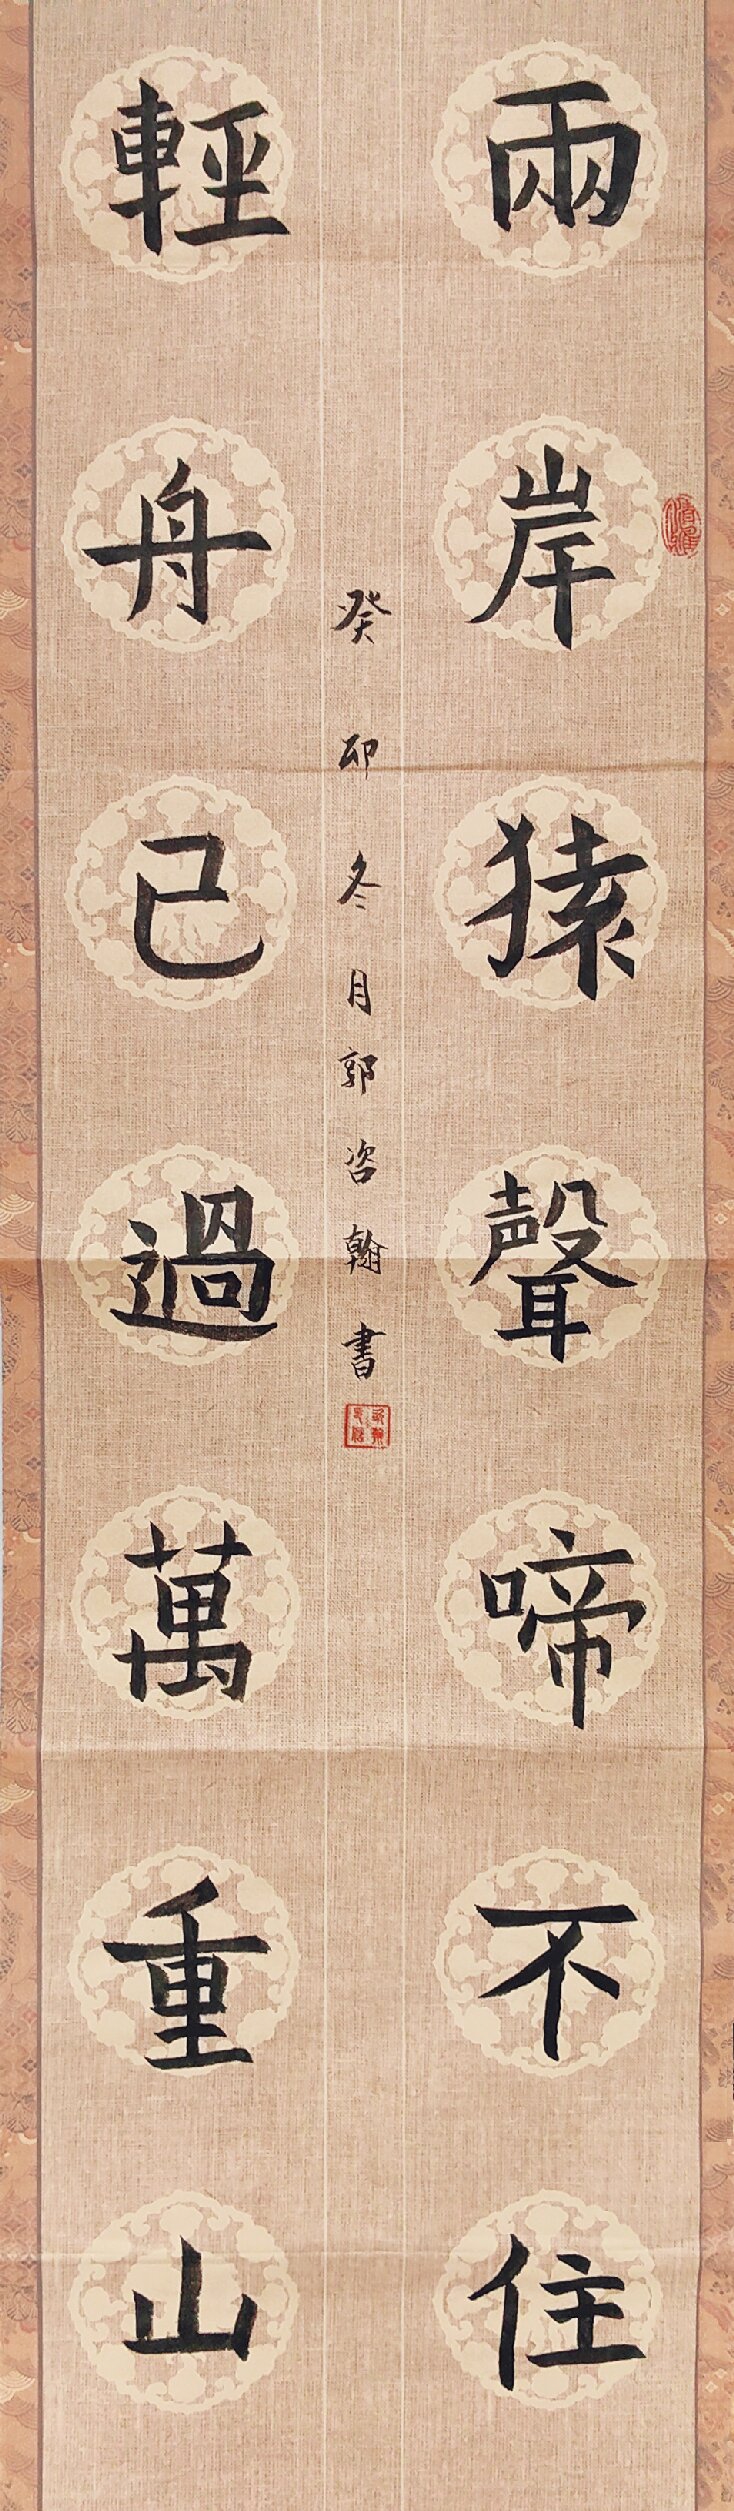 兩岸猿聲啼不住
輕舟已過萬重山
癸卯冬月郭咨翰書